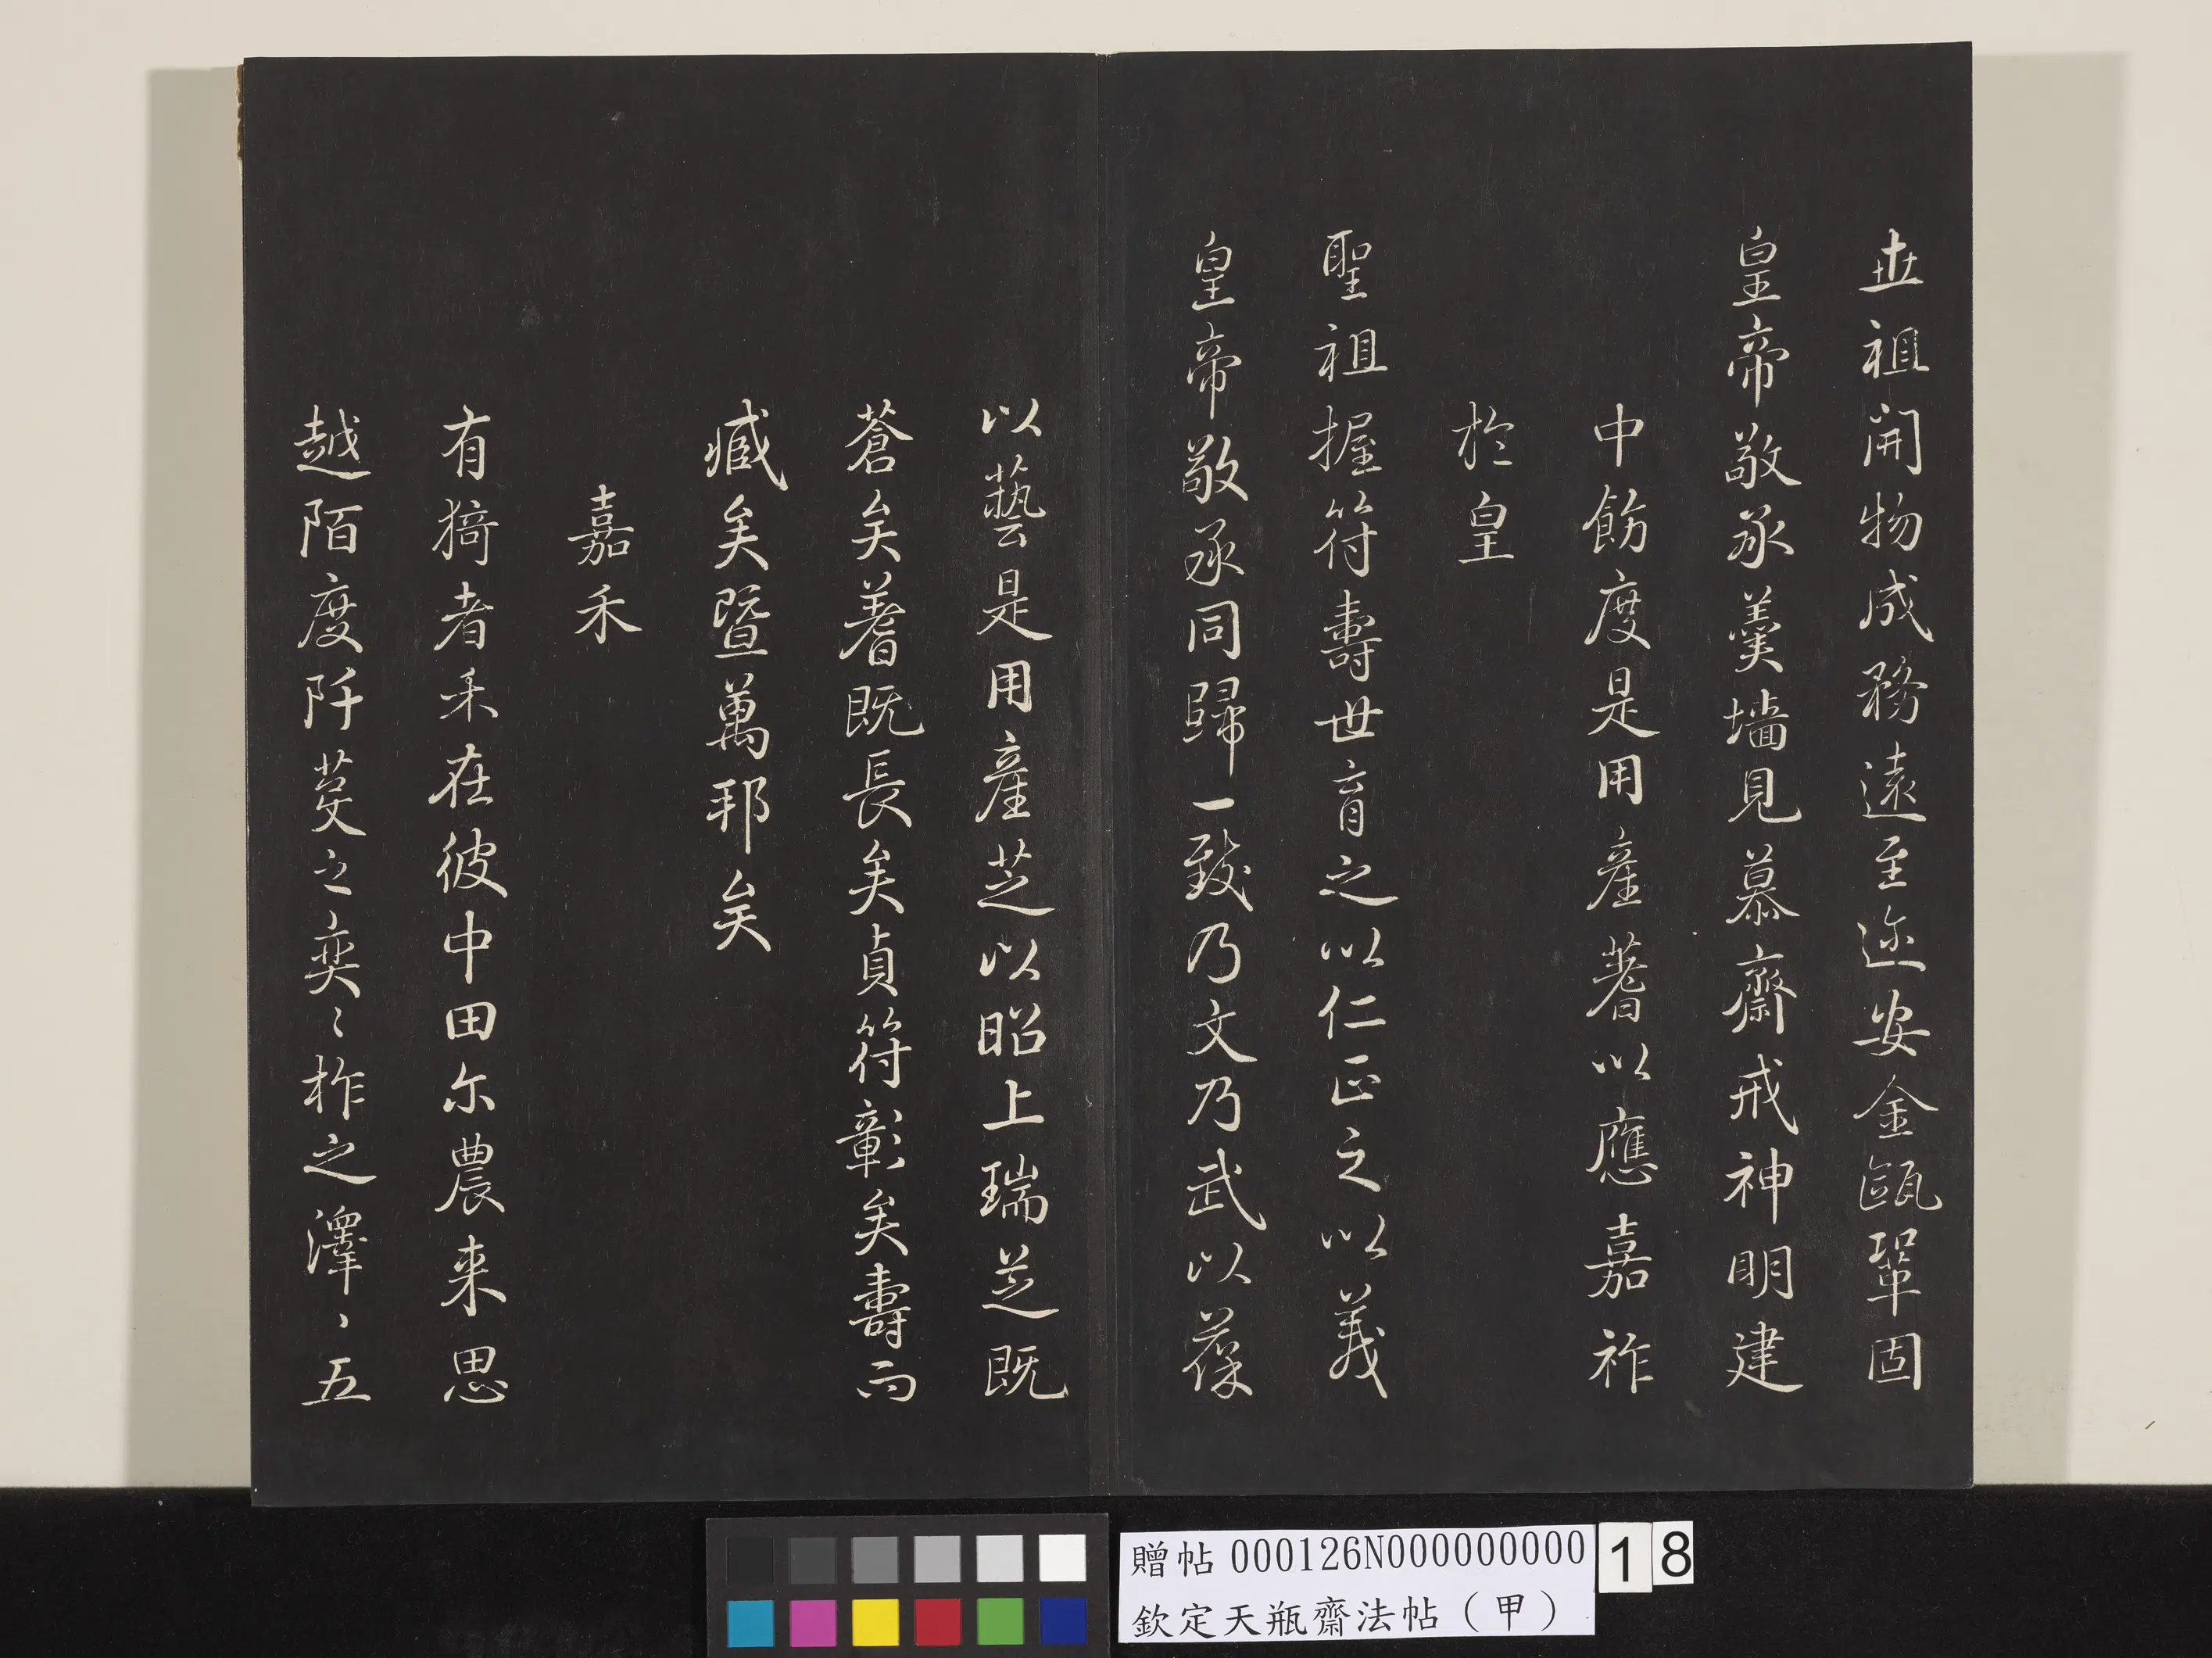 世祖開物成務遠至迩安金甌鞏固
皇帝敬承羹墙見慕齋戒神明建
中飭度是用產蓍以應嘉祚
於皇
聖祖握符壽世育之以仁正之以義
皇帝敬承同歸一致乃文乃武以葆
以藝是用產芝以昭上瑞芝既
蒼矣蓍既長矣貞符彰矣壽而
臧矣暨萬邦矣
嘉禾
有猗者禾在彼中田尔農来思
越陌度阡芟之奕〻柞之澤〻五
贈帖000126N000000000 18
欽定天瓶齋法帖（甲）